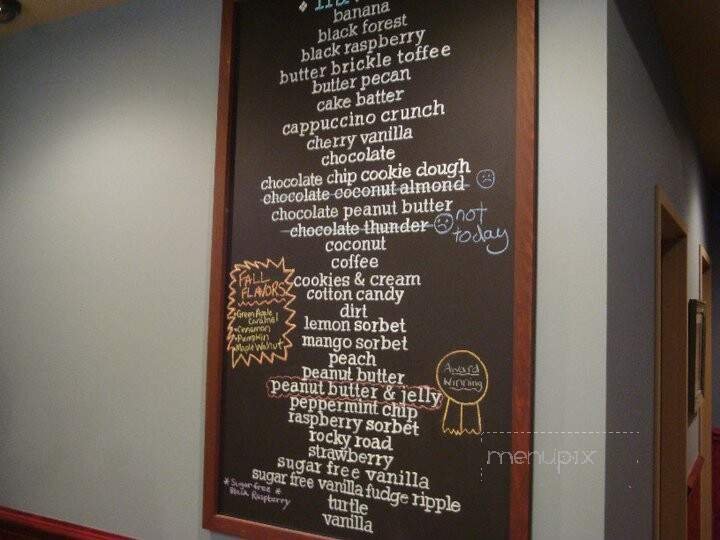 banana
black forest
black raspberry
butter brickle toffee
butter pecan
cake batter
cappuccino crunch
cherry vanilla
chocolate
chocolate chip cookie dough
chocolate coconut almond
chocolate peanut butter
chocolate thunder
not
today
coconut
coffee
cookies & cream
cotton candy
dirt
lemon sorbet
mango sorbet
peach
peanut butter
peanut butter & jelly
peppermint chip
raspberry sorbet
rocky road
strawberry
sugar free vanilla
sugar free vanilla fudge ripple
turtle
vanilla
FALL
FLAVORS
Green Apple
Caramel
Cinnamon
Pumpkin
Maple Walnut
Award
Winning
* Sugar free *
Black Raspberry
menupix